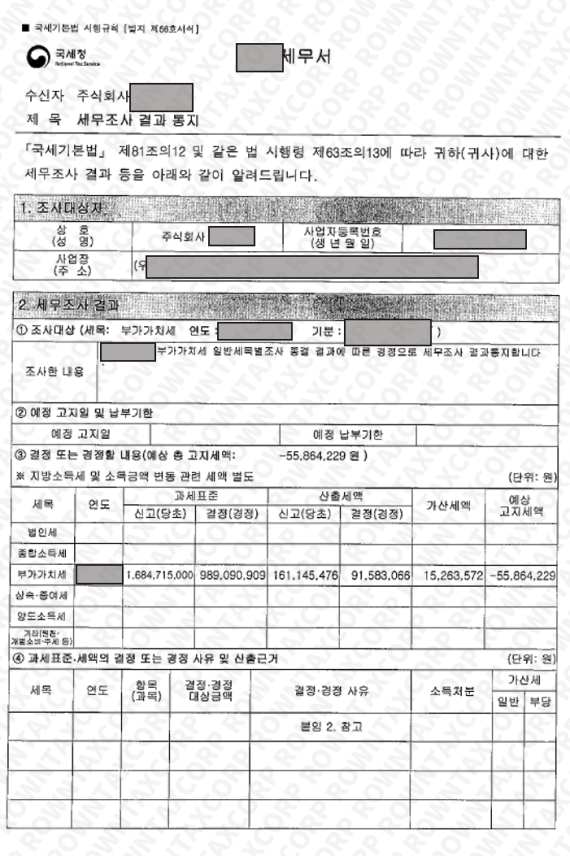 ■ 국세기본법 시행규칙 [별지 제56호서식]
국세청
National Tax Service
세무서
수신자 주식회사
제 목 세무조사 결과 통지
「국세기본법」 제81조의12 및 같은 법 시행령 제63조의13에 따라 귀하(귀사)에 대한
세무조사 결과 등을 아래와 같이 알려드립니다.
1. 조사대상자
상 호
(성 명)
주식회사
사업자등록번호
(생 년 월 일)
사업장
(주 소)
(우
2. 세무조사 결과
① 조사대상 (세목: 부가가치세 연도 : 기분 : )
조사한 내용
부가가치세 일반세목별조사 종결 결과에 따른 경정으로 세무조사 결과통지합니다
② 예정 고지일 및 납부기한
예정 고지일 예정 납부기한
③ 결정 또는 경정할 내용(예상 총 고지세액: -55,864,229 원 )
※ 지방소득세 및 소득금액 변동 관련 세액 별도 (단위: 원)
세목 연도 과세표준 산출세액 가산세액 예상
고지세액
신고(당초) 결정(경정) 신고(당초) 결정(경정)
법인세
종합소득세
부가가치세 1,684,715,000 989,090,909 161,145,476 91,583,066 15,263,572 -55,864,229
상속·증여세
양도소득세
기타(원천·
개별소비·주세 등)
④ 과세표준·세액의 결정 또는 경정 사유 및 산출근거 (단위: 원)
세목 연도 항목
(과목) 결정·경정
대상금액 결정·경정 사유 소득처분 가산세
일반 부당
붙임 2. 참고